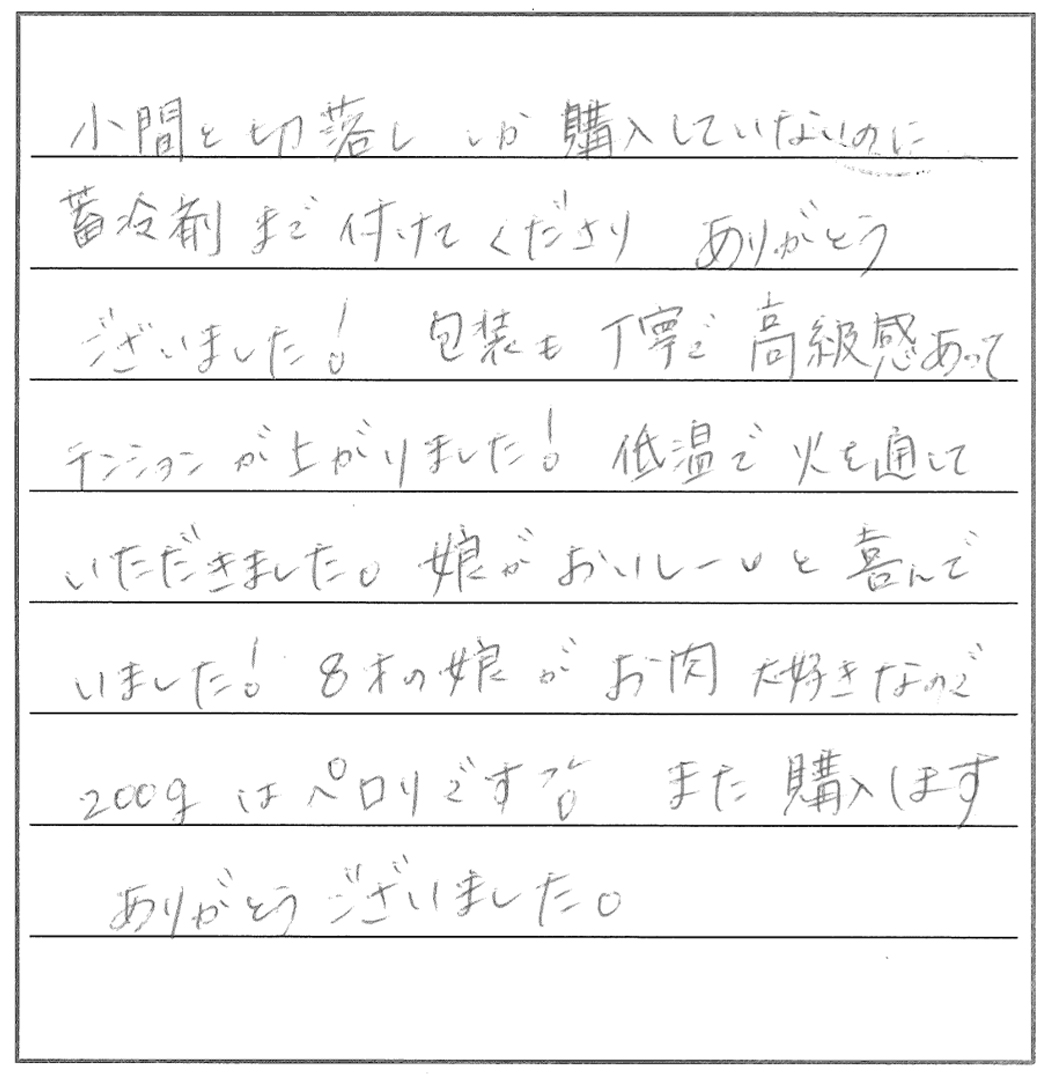 小間と切落ししか購入していないのに
蓄冷剤まで付けてくださり ありがとう
ございました! 包装も丁寧で高級感あって
テンションが上がりました! 低温で火を通して
いただきました。娘がおいしーいと喜んで
いました! 8才の娘がお肉大好きなので
200gはペロリです また購入します
ありがとうございました。